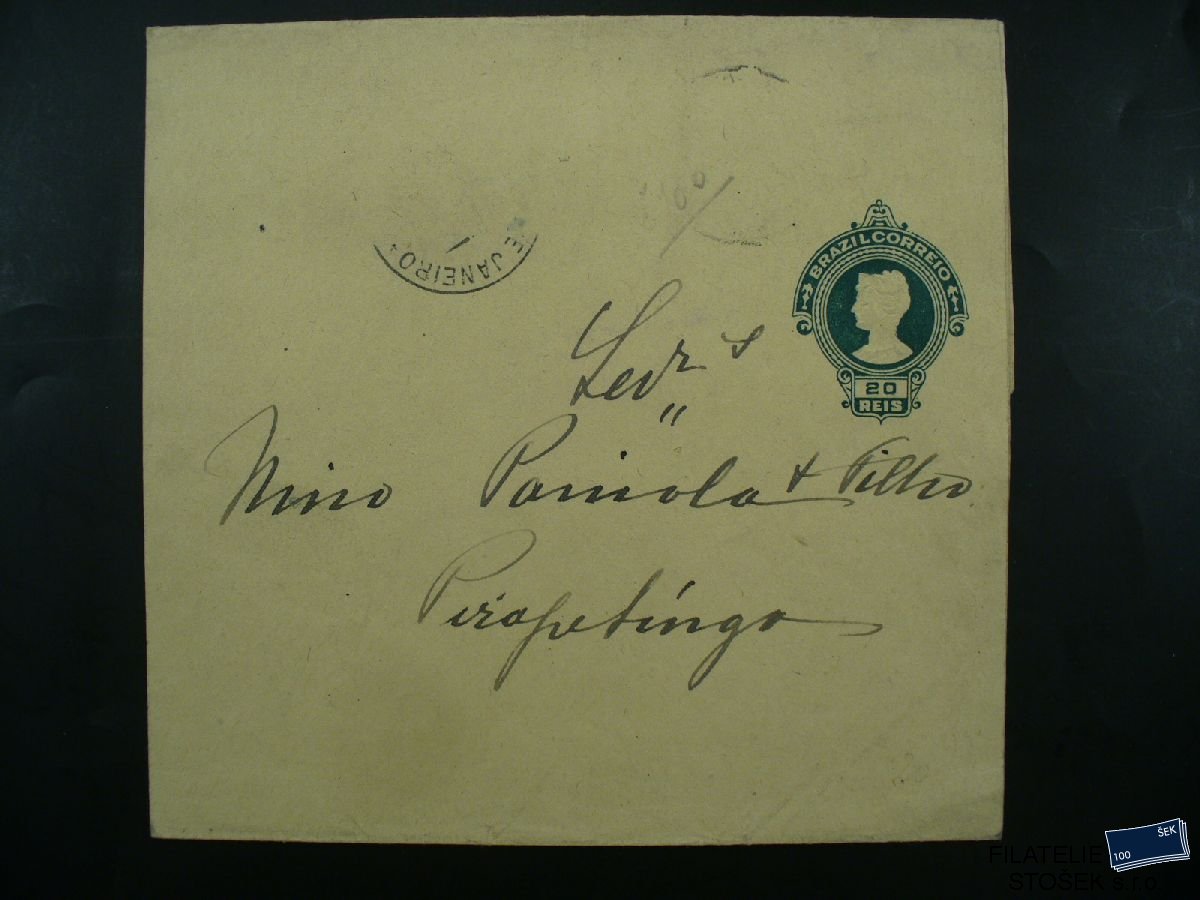 E JANEIRO
BRAZIL CORREIO
20
REIS
Nino Paniola + Filho
Pirapetinga
ŠEK
100
FILATELIE
STOŠEK s.r.o.